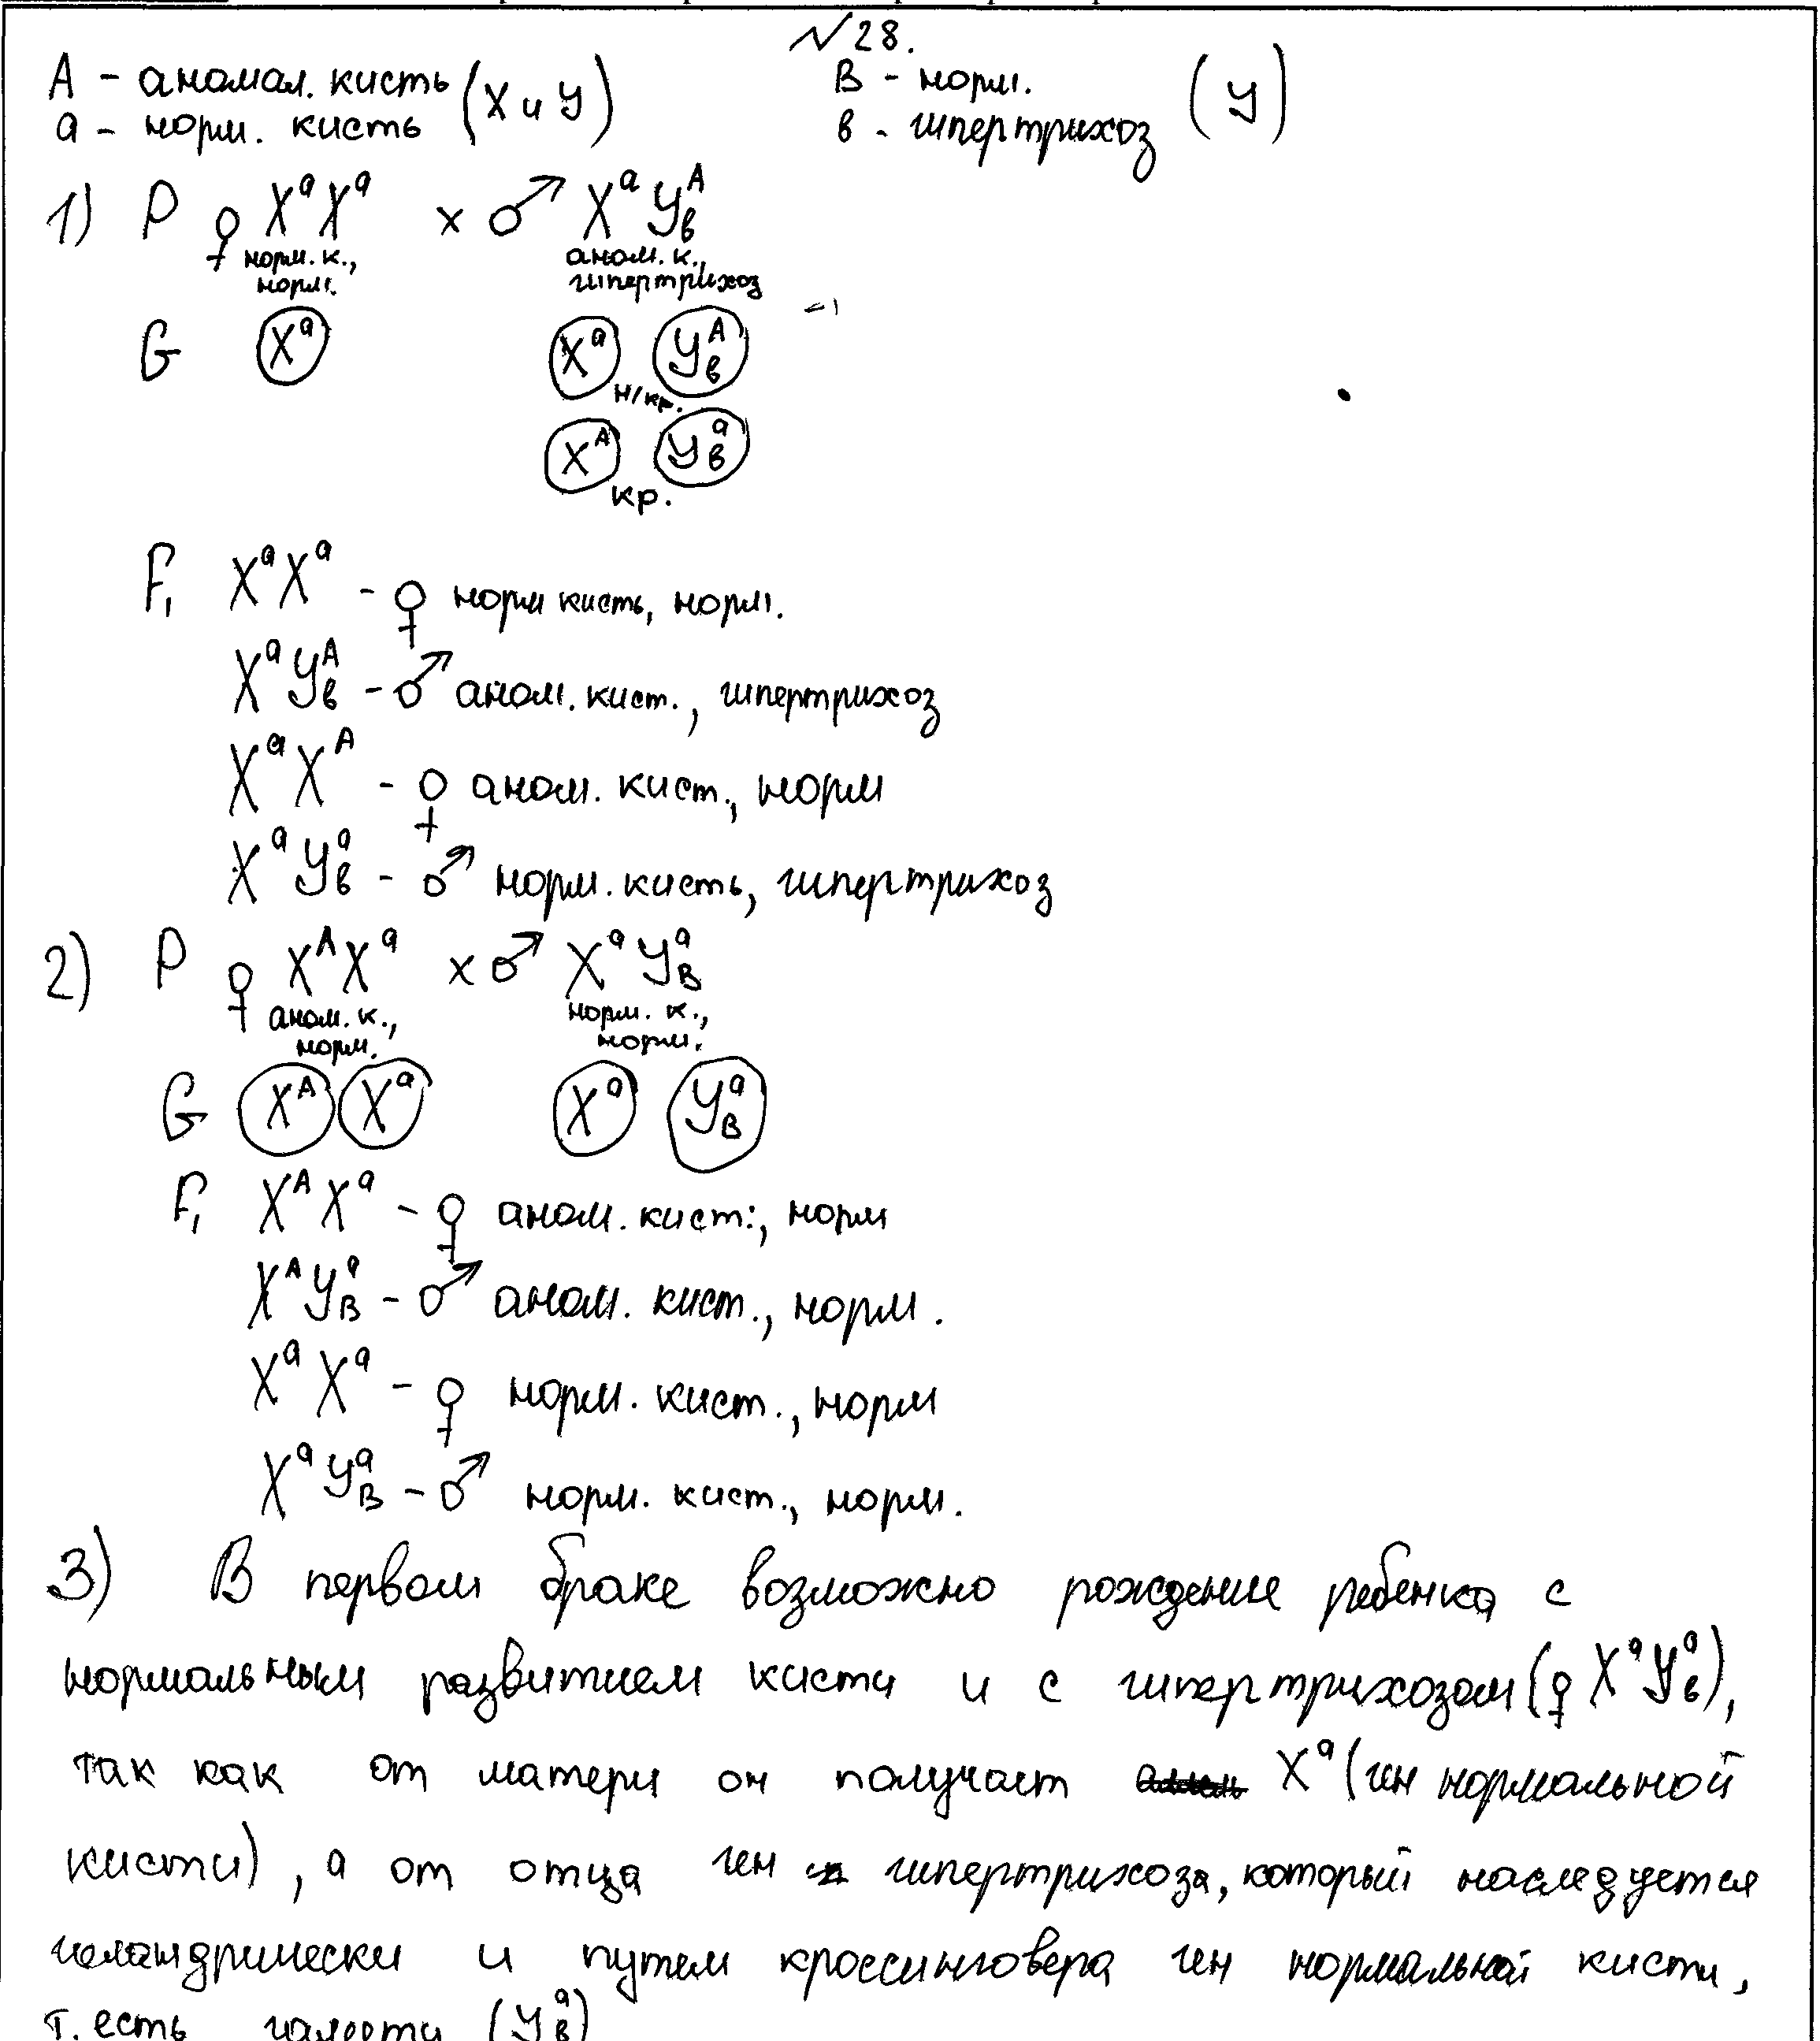 №28.
А - аномал. кисть (X и У) В - норм. (У)
а - норм. кисть в - гипертрихоз
1) P ♀ XᵃXᵃ x ♂ XᵃУᴬв
норм. к., аном. к.,
норм. гипертрихоз
G Xᵃ Xᵃ Уᴬв
н/кр.
Xᴬ Уᵃв
кр.
F₁ XᵃXᵃ - ♀ норм кисть, норм.
XᵃУᴬв - ♂ аном. кист., гипертрихоз
XᵃXᴬ - ♀ аном. кист., норм
XᵃУᵃв - ♂ норм. кисть, гипертрихоз
2) P ♀ XᴬXᵃ x ♂ XᵃУᵃВ
аном. к., норм. к.,
норм. норм.
G Xᴬ Xᵃ Xᵃ УᵃВ
F₁ XᴬXᵃ - ♀ аном. кист., норм
XᴬУᵃВ - ♂ аном. кист., норм.
XᵃXᵃ - ♀ норм. кист., норм
XᵃУᵃВ - ♂ норм. кист., норм.
3) В первом браке возможно рождение ребенка с
нормальным развитием кисти и с гипертрихозом (♀ XᵃУᵃв),
так как от матери он получает Xᵃ (ген нормальной
кисти), а от отца ген гипертрихоза, который наследуется
голандрически и путем кроссинговера ген нормальной кисти,
т. есть гаметы (Уᵃв)